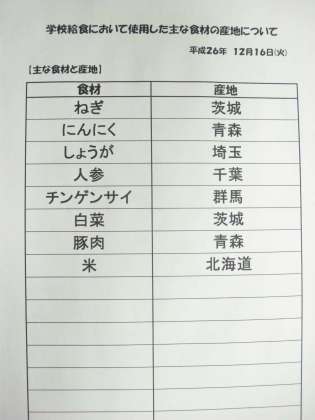 学校給食において使用した主な食材の産地について
平成26年 12月16日(火)
【主な食材と産地】
食材 産地
ねぎ 茨城
にんにく 青森
しょうが 埼玉
人参 千葉
チンゲンサイ 群馬
白菜 茨城
豚肉 青森
米 北海道